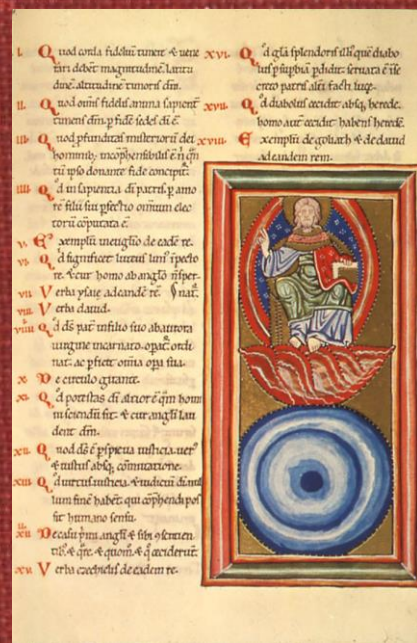 I. Quod corda fidelium timere & vene
rari debent magnitudinē. latitu
dinē. altitudinē timoris dñi.
II. Quod omīs fidelis anima sapient
timens dm̄. p̄ fidē sedes dī ē.
III. Quod pfunditas misteriorū dei
hominibꝫ incōphensibilis ē. ñ qn̄
tū ipso donante fide concipit̄.
IIII. Qd in sapientia dī patris p amo
rē filii sui pfectio omnium elec
torū cōputata ē.
V. Exemplū in euglio de eadē re.
VI. Qd significet luteus lim' ī pecto
re. & cur homo ab anglō ñ sper
nat̄.
VII. Verba ysaie ad eandē rē.
VIII. Verba david.
VIIII. Qd ds pat̄ in filio suo ab aurora
virgine incarnato opat̄. ordi
nat. ac pficit omīa opa sua.
X. De circulo girante.
XI. Qd potestas dī altior ē qm̄ homi
ni sciendū sit. & cur angli lau
dent dm̄.
XII. Quod ds ē pspicua iusticia. ver'
& iustus absqꝫ cōmutatione.
XIII. Qd virtus iusticia & iudiciū dī nul
lum finē habet. qui cōphendi pos
sit humano sensu.
XIIII. De casu pimi angli & sibi 9sentien
tiū. & qre. & quom̄. & q̊ ceciderūt.
XV. Verba ezechielis de eadem re.
XVI. Qd glā splendoris illi' quē diabo
lus p supbiā pdidit. servata ē ī se
creto patris alti facti luce.
XVII. Qd diabolus cecidit absqꝫ herede.
homo aut̄ cecidit habens heredē.
XVIII. Exemplū de goliath & de david
ad eandem rem.